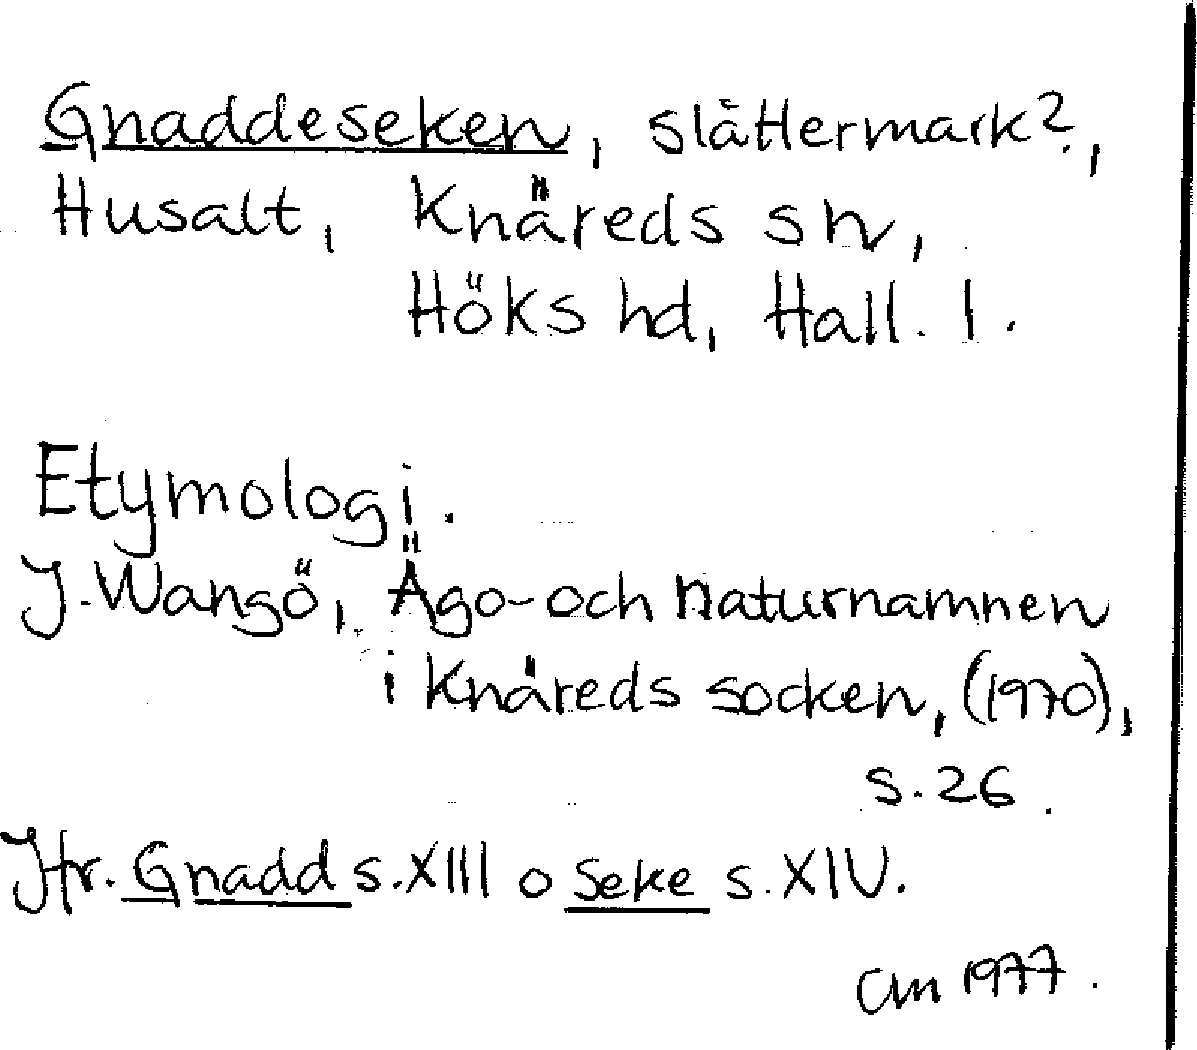 Gnaddeseken, slåttermark?,
Husalt, Knäreds sn,
Höks hd, Hall. l.
Etymologi.
J. Wangö, Ägo- och naturnamnen
i Knäreds socken, (1970),
s. 26.
Jfr. Gnadd s. XIII o Seke s. XIV.
CM 1977.